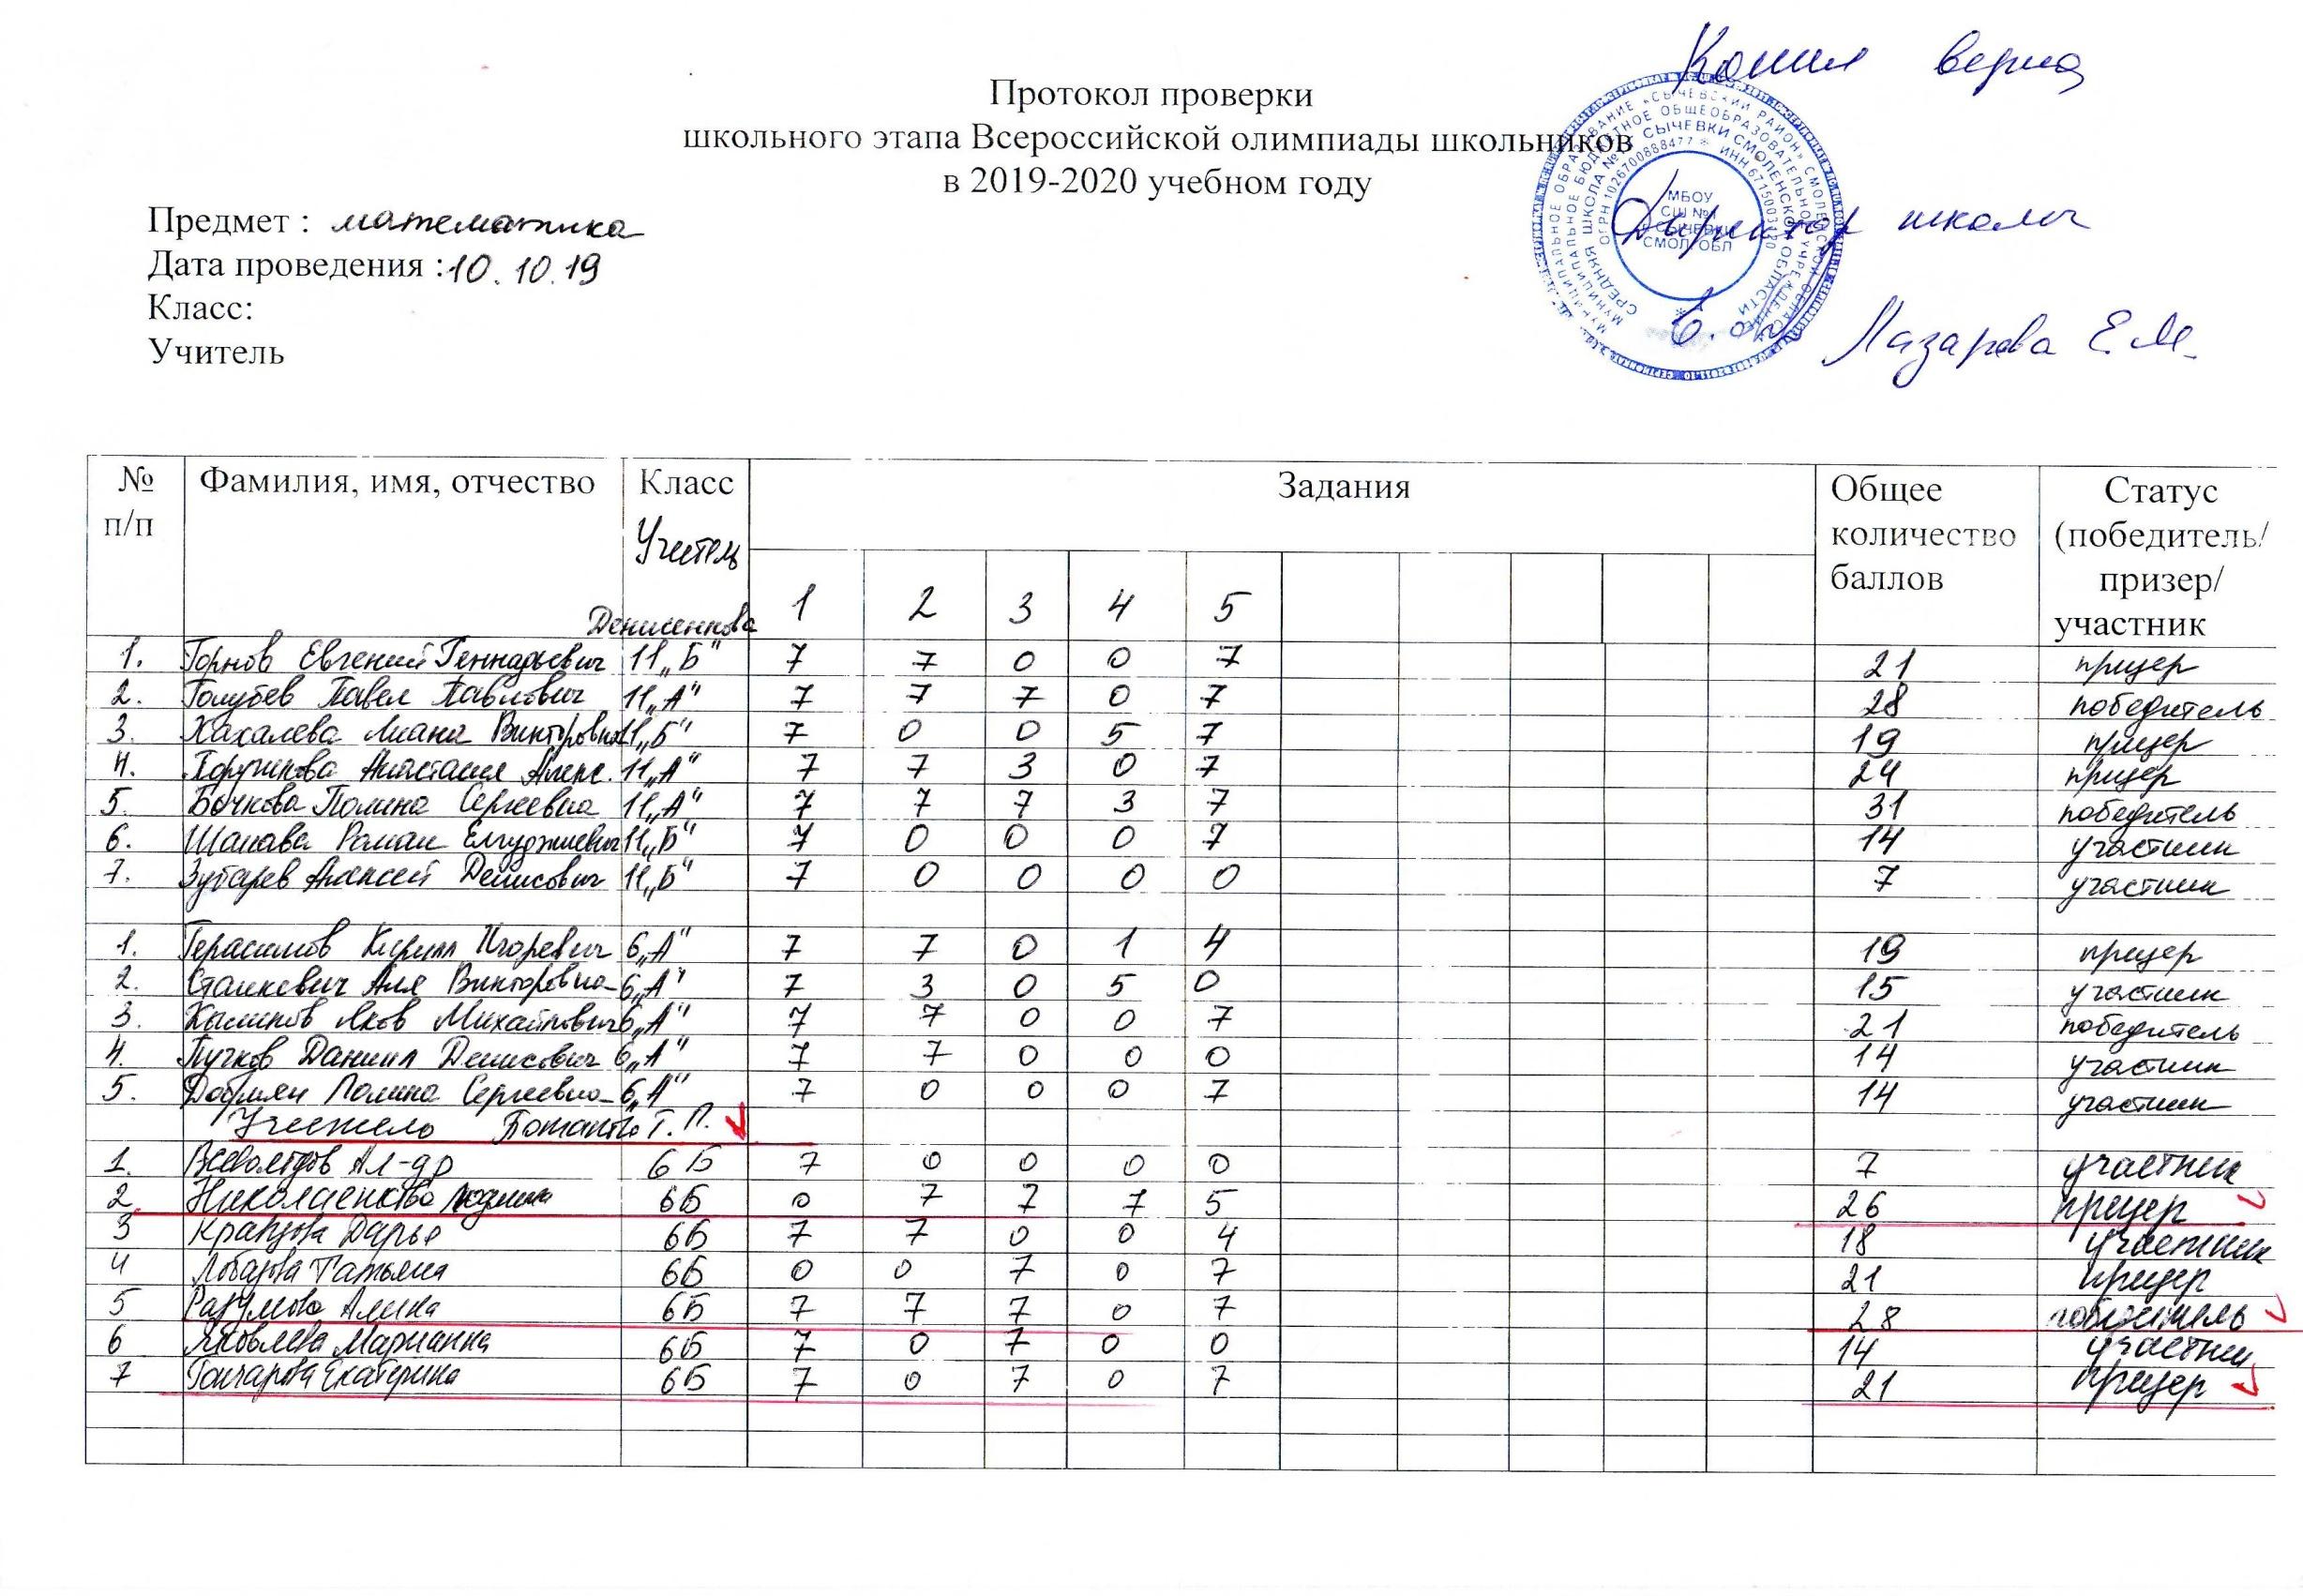 Копия верна
Протокол проверки
школьного этапа Всероссийской олимпиады школьников
в 2019-2020 учебном году
МУНИЦИПАЛЬНОЕ ОБРАЗОВАНИЕ «СЫЧЕВСКИЙ РАЙОН» СМОЛЕНСКОЙ ОБЛАСТИ
МУНИЦИПАЛЬНОЕ БЮДЖЕТНОЕ ОБЩЕОБРАЗОВАТЕЛЬНОЕ УЧРЕЖДЕНИЕ
СРЕДНЯЯ ШКОЛА №1 Г. СЫЧЕВКИ СМОЛЕНСКОЙ ОБЛАСТИ
ОГРН 1026700888477 * ИНН 6715003420
МБОУ
СШ №1
Г. СЫЧЕВКИ
СМОЛ. ОБЛ
Директор школы
Лазарева Е.М.
Предмет : математика
Дата проведения : 10.10.19
Класс:
Учитель
№ п/п Фамилия, имя, отчество Класс Учитель Задания Общее количество баллов Статус (победитель/ призер/ участник
1 2 3 4 5
Денисенкова
1. Горнов Евгений Геннадьевич 11„Б" 7 7 0 0 7 21 призер
2. Голубев Павел Павлович 11„А" 7 7 7 0 7 28 победитель
3. Хахалева Лиана Викторовна 11„Б" 7 0 0 5 7 19 призер
4. Поручикова Анастасия Алекс. 11„А" 7 7 3 0 7 24 призер
5. Бочкова Полина Сергеевна 11„А" 7 7 7 3 7 31 победитель
6. Шапава Роман Елгуджиевич 11„Б" 7 0 0 0 7 14 участник
7. Зубарев Алексей Денисович 11„Б" 7 0 0 0 0 7 участник
1. Герасимов Кирилл Игоревич 6„А" 7 7 0 1 4 19 призер
2. Станкевич Аля Викторовна 6„А" 7 3 0 5 0 15 участник
3. Яков Михайлович 6„А" 7 7 0 0 7 21 победитель
4. Пучков Даниил Денисович 6„А" 7 7 0 0 0 14 участник
5. Полина Сергеевна 6„А" 7 0 0 0 7 14 участник
Учитель Т.П.
1. Ал-др 6Б 7 0 0 0 0 7 участник
2. Людмила 6Б 0 7 7 7 5 26 призер
3 Кравцова Дарья 6Б 7 7 0 0 4 18 участник
4 Лобарева Татьяна 6Б 0 0 7 0 7 21 призер
5 Разумова Алина 6Б 7 7 7 0 7 28 победитель
6 Яковлева Марианна 6Б 7 0 7 0 0 14 участник
7 Гончарова Екатерина 6Б 7 0 7 0 7 21 призер